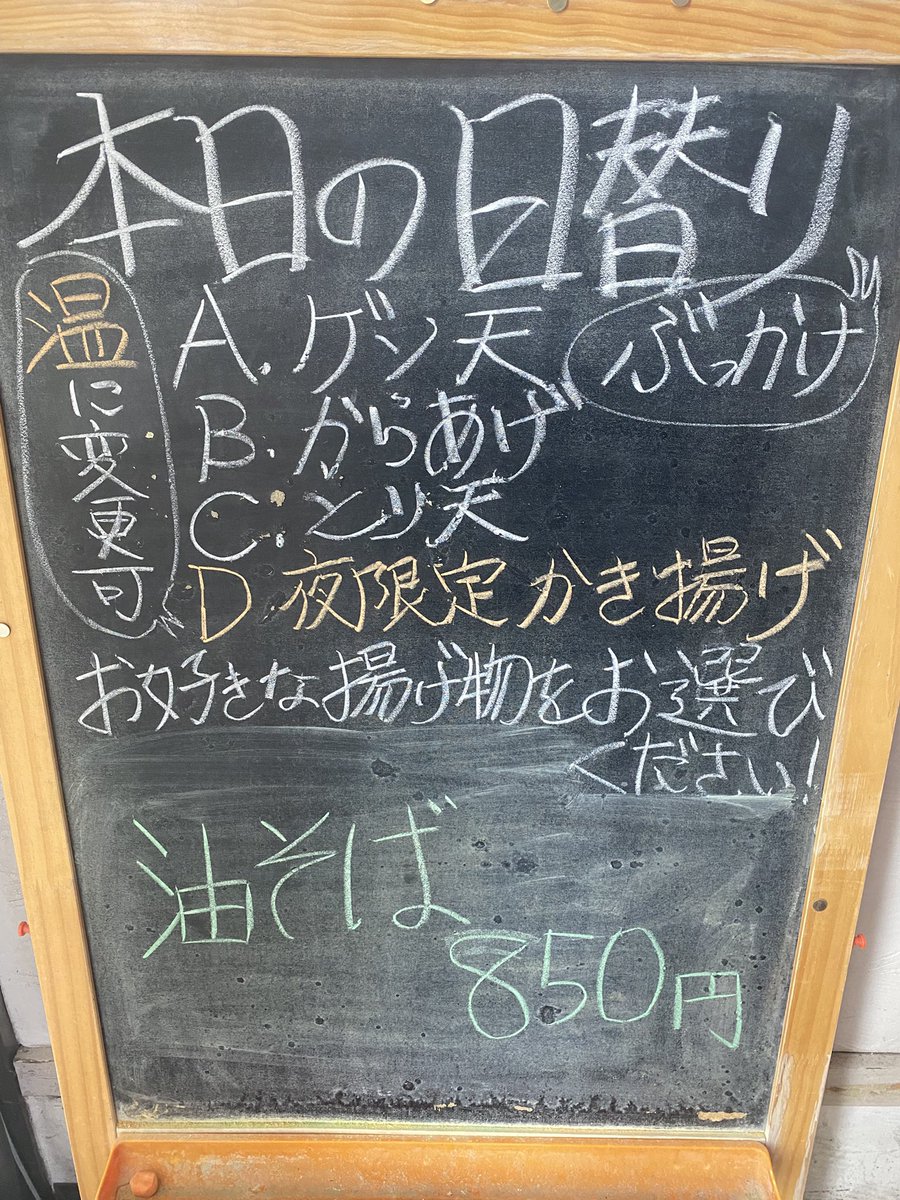 本日の日替り
ぶっかけ
温に変更可
A.ゲン天
B.からあげ
C.とり天
D.夜限定かき揚げ
お好きな揚げ物をお選び
ください!
油そば
850円